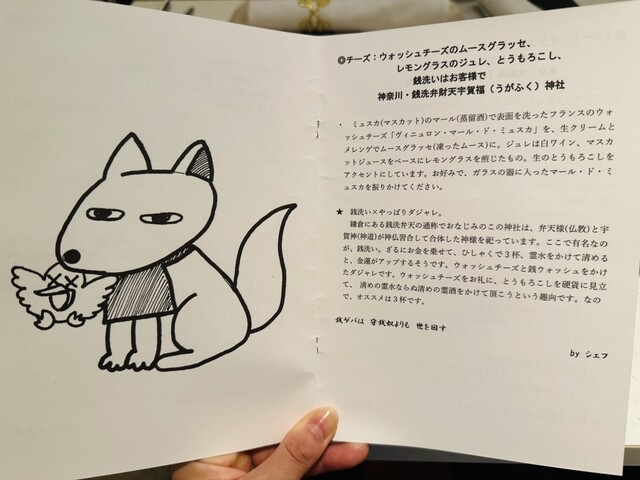 ◎チーズ：ウォッシュチーズのムースグラッセ、
レモングラスのジュレ、とうもろこし、
銭洗いはお客様で
神奈川・銭洗弁財天宇賀福（うがふく）神社
・ ミュスカ(マスカット)のマール(蒸留酒)で表面を洗ったフランスのウォ
ッシュチーズ「ヴィニュロン・マール・ド・ミュスカ」を、生クリームと
メレンゲでムースグラッセ(凍ったムース)に。ジュレは白ワイン、マスカ
ットジュースをベースにレモングラスを煎じたもの。生のとうもろこしを
アクセントにしています。お好みで、ガラスの器に入ったマール・ド・ミ
ュスカを振りかけてください。
★ 銭洗い×やっぱりダジャレ。
鎌倉にある銭洗弁天の通称でおなじみのこの神社は、弁天様(仏教)と宇
賀神(神道)が神仏習合して合体した神様を祀っています。ここで有名なの
が、銭洗い。ざるにお金を乗せて、ひしゃくで3杯、霊水をかけて清める
と、金運がアップするそうです。ウォッシュチーズと銭ウォッシュをかけ
たダジャレです。ウォッシュチーズをお礼に、とうもろこしを硬貨に見立
て、清めの霊水ならぬ清めの霊酒をかけて頂こうという趣向です。なの
で、オススメは3杯です。
銭ゲバは 守銭奴よりも 世を回す
by シェフ